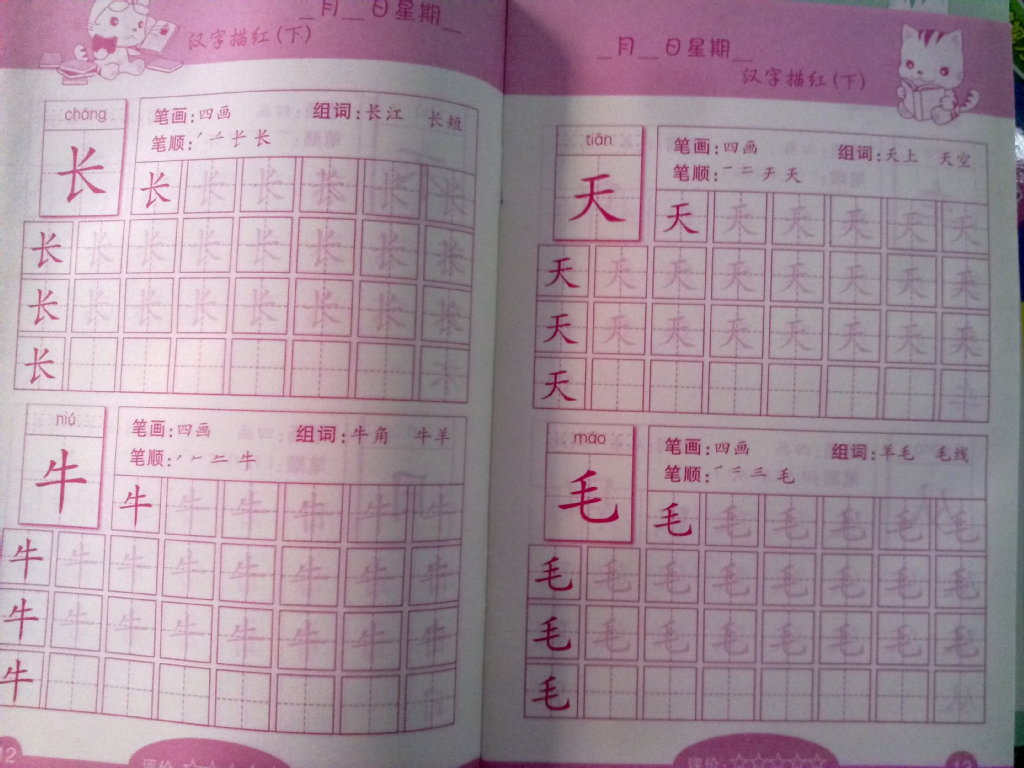 _月_日星期_
汉字描红(下)
cháng
长
笔画:四画 组词:长江 长短
笔顺:
长 长 长 长 长 长
长 长 长 长 长 长 长 长
长 长 长 长 长 长 长 长
长
niú
牛
笔画:四画 组词:牛角 牛羊
笔顺:
牛 牛 牛 牛 牛 牛
牛 牛 牛 牛 牛 牛 牛 牛
牛 牛 牛 牛 牛 牛 牛 牛
牛
12
评价:☆☆
_月_日星期_
汉字描红(下)
tiān
天
笔画:四画 组词:天上 天空
笔顺:一 二 チ 天
天 天 天 天 天 天
天 天 天 天 天 天 天 天
天 天 天 天 天 天 天 天
天
máo
毛
笔画:四画 组词:羊毛 毛线
笔顺:
毛 毛 毛 毛 毛 毛
毛 毛 毛 毛 毛 毛 毛 毛
毛 毛 毛 毛 毛 毛 毛 毛
毛
评价:☆☆☆☆☆